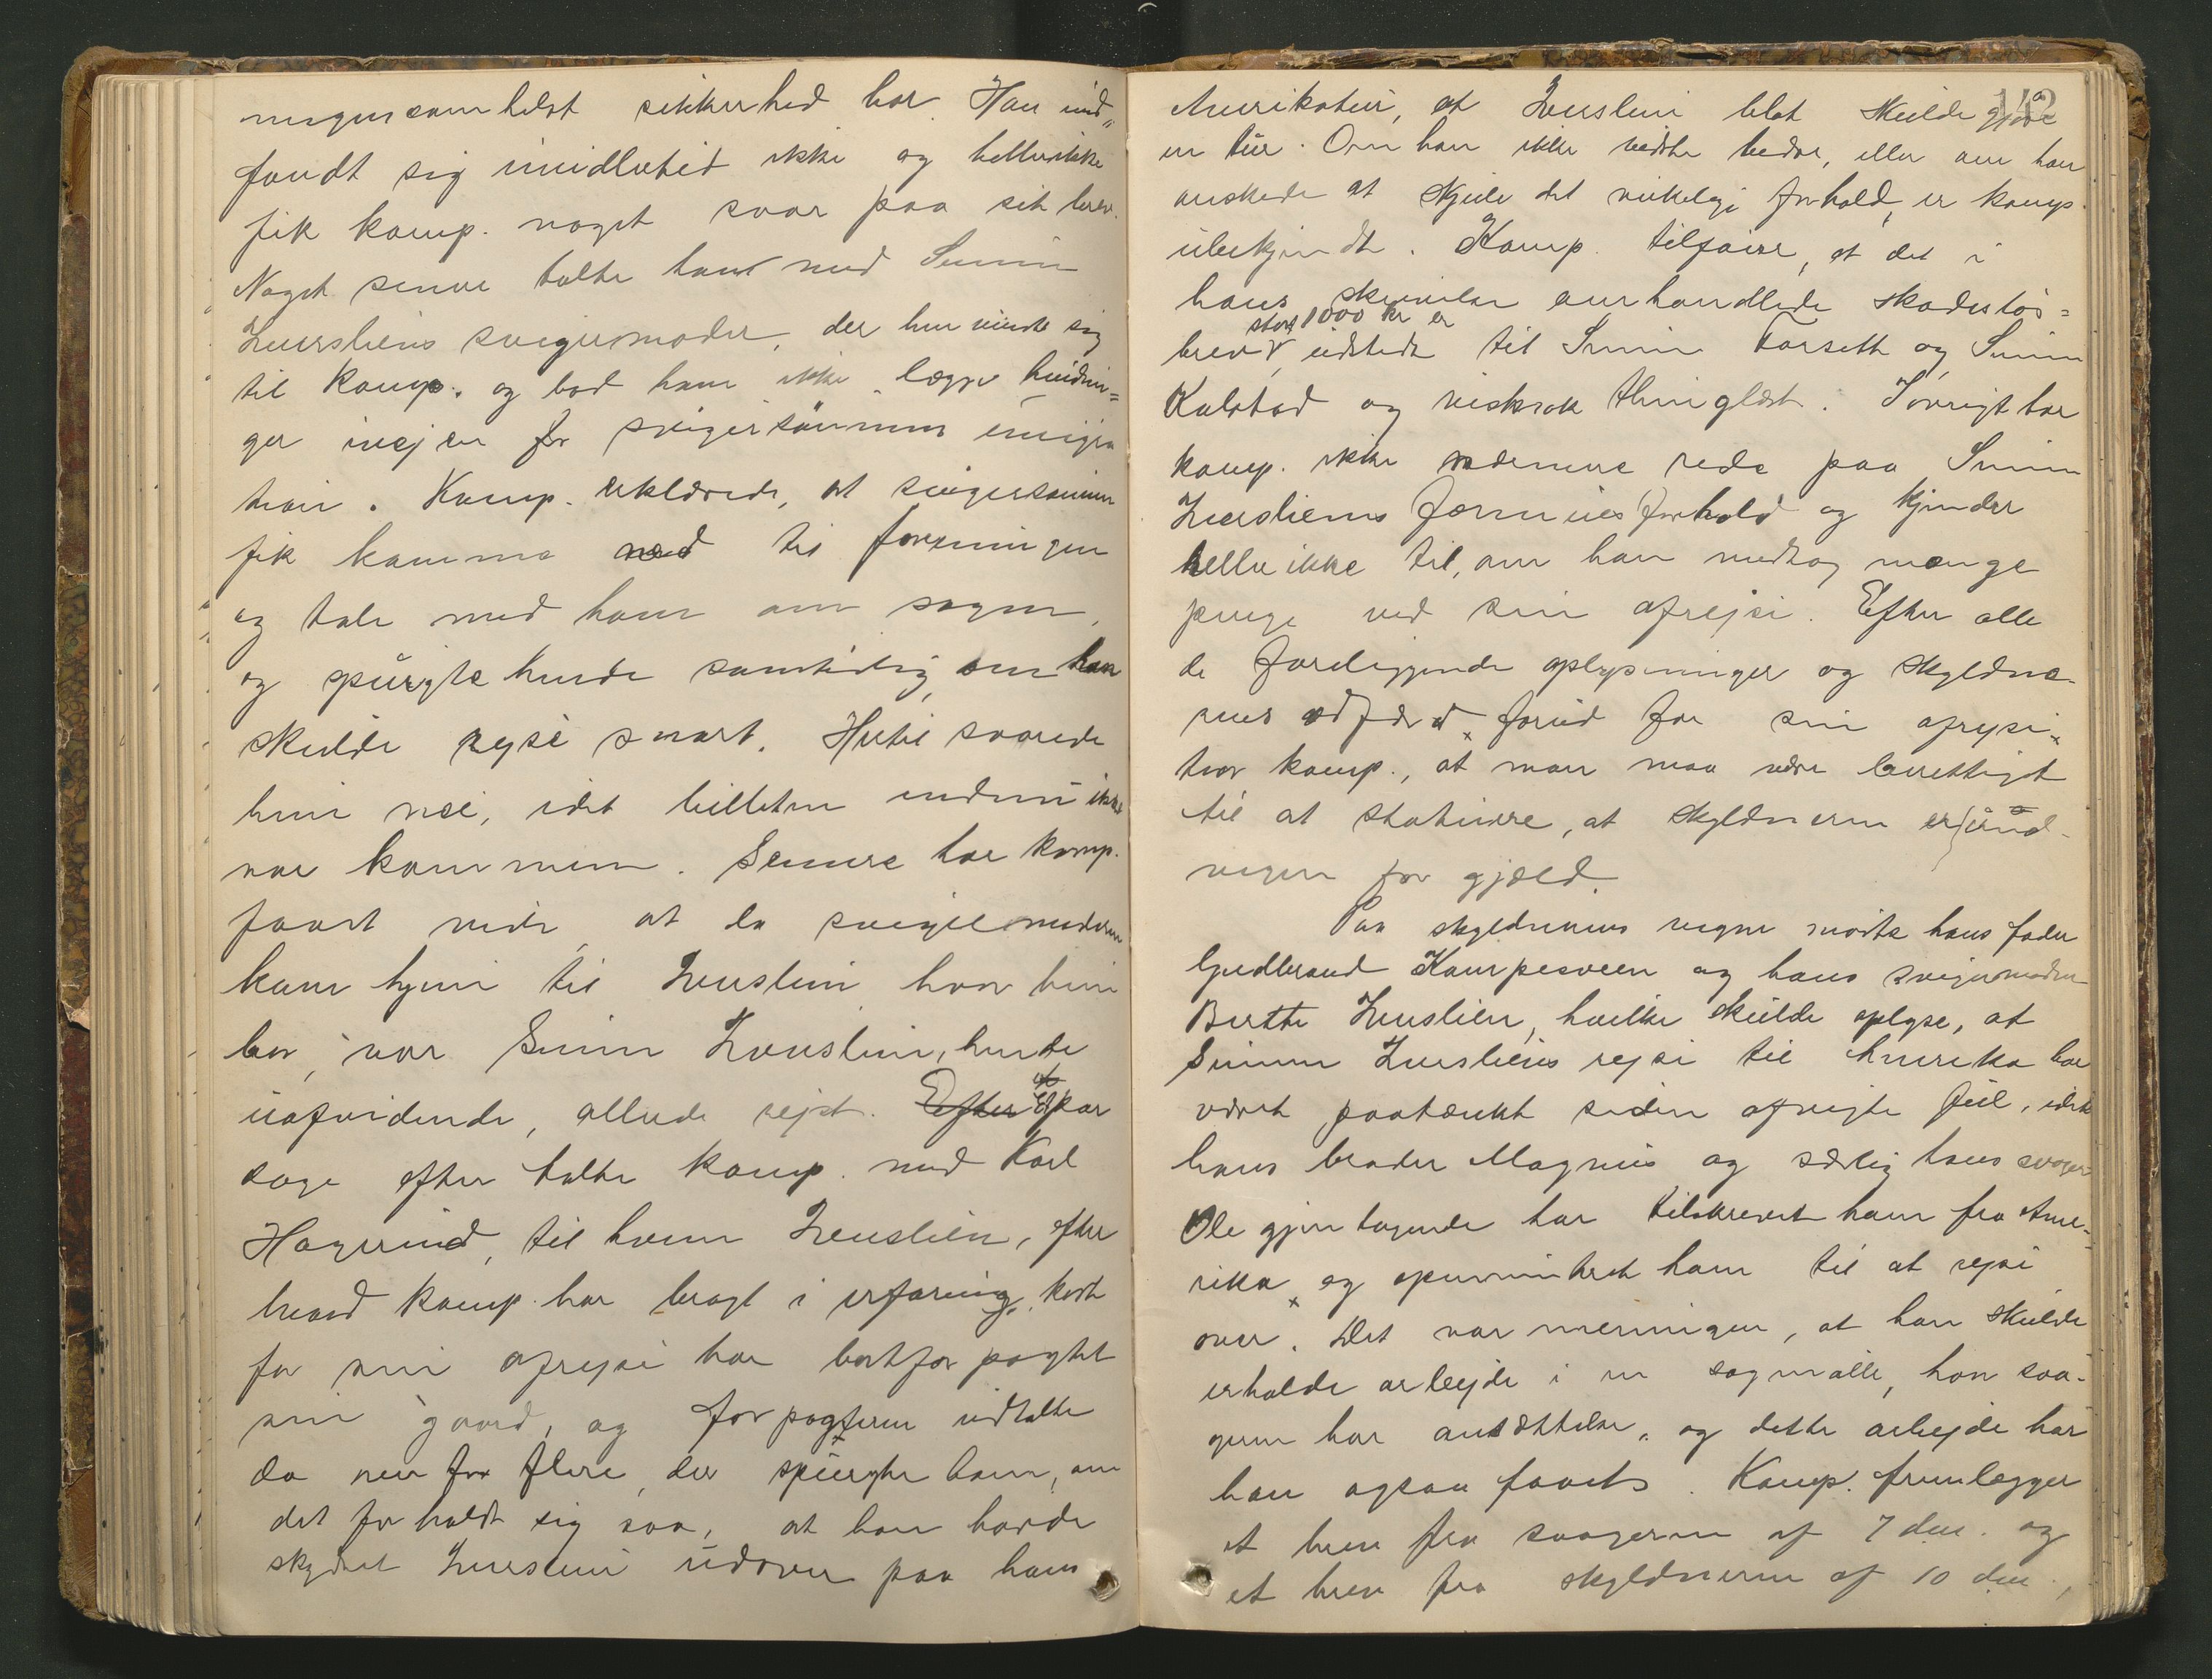 nogensomhelst sikkerhed har. Han ind„
fandt sig imidlertid ikke og hellerikke
fik komp. noget svar paa sit brev.
Noget senere talte han med Simen
Luersliens svigermoder, der henvendte sig
til komp. og bad ham ikke lægge hindrin=
ger ivejen for svigersønnens emigra
tion. Komp. erklærede, at svigersønnen
fik komme ned til foreningen
og tale med ham om sagen,
og spurgte hende samtidig, om han
skulde rejse snart. Hertil svarede
hun nei, idet billetten endnu ikke
var kommen. Senere har komp.
faaet vide, at da svigermoderen
kom hjem til Luerslien hvor hun
bor, var Simen Luerslien, hende
uafvidende, allerede rejst. Et par
dage efter talte komp. med Karl
Hagerud, til hvem Luerslien, efter
hvad komp. har bragt i erfaring, kort
før sin afrejse har bortforpagtet
sin gaard, og forpagteren udtalte
da nu for flere, der spurgte ham, om
det forholdt sig saa, at han havde
skydset Luerslien udover paa hans
142
Amerikatur, at Luerslien blot skulde gjøre
en tur. Om han ikke vidste bedre, eller om han
ønskede at skjule det virkelige forhold, er komp.
ubekjendt. Komp. tilføier, at det i
hans skrivelse omhandlede skadesløs=
stort 1000 kr er
brev udstedt til Simen Forseth og Simen
Kalstad og neskrak thinglæst. Iøvrigt har
komp. ikke nærmere rede paa Simen
Luersliens formuesforhold og kjender
heller ikke til, om han medtog mange
penge ved sin afrejse. Efter alle
de foreliggende oplysninger og skyldne-
rens adfærd forud for sin afrejse
tror komp., at man maa være berettiget
til at statuere, at skyldneren er und-
vegen for gjæld.
Paa skyldnerens vegne mødte hans fader
Gudbrand Kampesveen og hans svigermoder
Berthe Luerslien, hvilke skulde oplyse, at
Simen Luersliens rejse til Amerika har
været paatænkt siden afvigte jul, idet
hans broder Magnus og særlig hans svoger
Ole gjentagende har tilskrevet ham fra Ame-
rika og opmuntret ham til at rejse
over. Det var meningen, at han skulde
erholde arbejde i en sagmølle, hvor svo-
geren har ansættelse, og dette arbejde har
han ogsaa faaet. Komp. fremlægger
et brev fra svogeren af 7 dec. og
et brev fra skyldneren af 10 dec.,